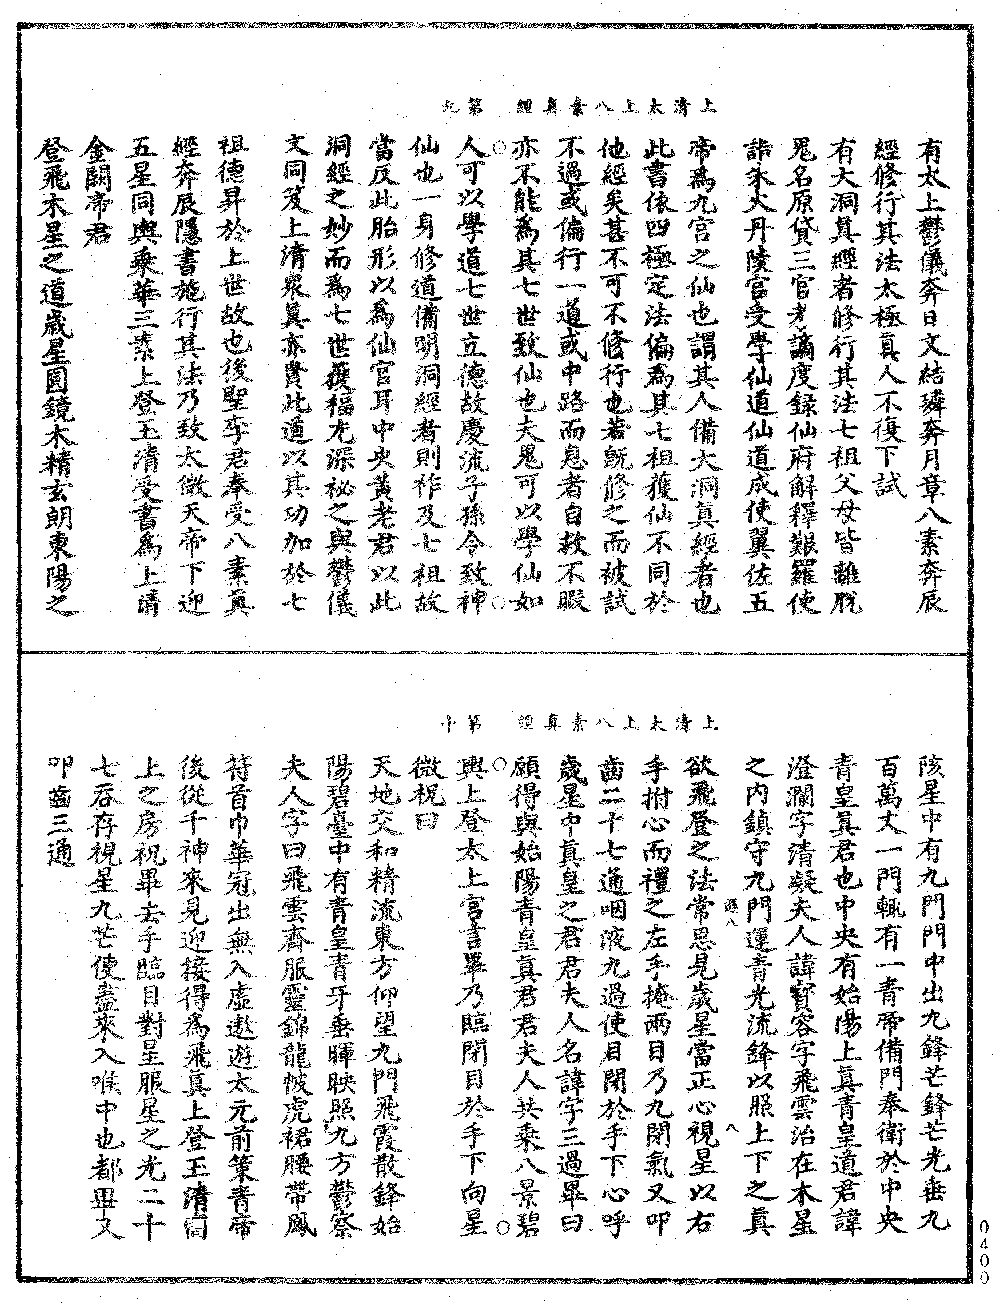 上清太上八素真經　第九
有太上鬱儀奔日文結璘奔月章八素奔辰
經修行其法太極真人不復下試
有大洞真經者修行其法七祖父母皆離脫
鬼名原貸三官考謫度錄仙府解釋艱羅使
詣朱火丹陵宮受學仙道仙道成使翼佐五
帝為九宮之仙也謂其人備大洞真經者也
此書依四極定法偏為其七祖獲仙不同於
他經矣甚不可不修行也若既修之而被試
不過或偏行一道或中路而息者自救不暇
亦不能為其七世致仙也夫鬼可以學仙如
人可以學道七世立德故慶流子孫令致神
仙也一身修道備明洞經者則祚及七祖故
當反此胎形以為仙官耳中央黃老君以此
洞經之妙而為七世獲福尤深祕之與鬱儀
文同及上清眾真亦貴此道以其功加於七
祖德昇於上世故也後聖李君奉受八素真
經奔辰隱書施行其法乃致太微天帝下迎
五星同輿乘華三素上登玉清受書為上清
金闕帝君
登飛木星之道歲星圓鏡木精玄朗東陽之
上清太上八素真經　第十
陔星中有九門門中出九鋒芒鋒芒光垂九
百萬丈一門輒有一青帝備門奉衛於中央
青皇真君也中央有始陽上真青皇道君諱
澄瀾字清凝夫人諱寶容字飛雲治在木星
之內鎮守九門運青光流鋒以照上下之真
欲飛登之法常思見歲星當正心視星以右
手拊心而禮之左手掩兩目乃九閉氣又叩
齒二十七通咽液九過使目閉於手下心呼
歲星中真皇之君君夫人名諱字三過畢曰
願得與始陽青皇真君君夫人共乘八景碧
輿上登太上宮言畢乃臨閉目於手下向星
微祝曰
天地交和精流東方仰望九門飛霞散鋒始
陽碧臺中有青皇青牙垂暉映照九方鬱察
夫人字曰飛雲齊服靈錦龍帔虎裙腰帶鳳
符首巾華冠出無入虛遨遊太元前策青帝
後從千神來見迎接得為飛真上登玉清高
上之房祝畢去手臨目對星服星之光二十
七吞存視星九芒使盡來入喉中也都畢又
叩齒三通
0400